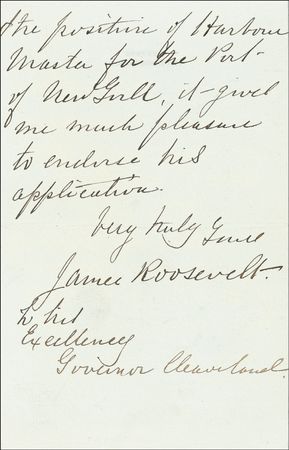 the position of Harbour
Master for the Port
of New York, it gives
me much pleasure
to endorse his
application.
Very truly Yours
James Roosevelt.
To His
Excellency
Governor Cleaveland.